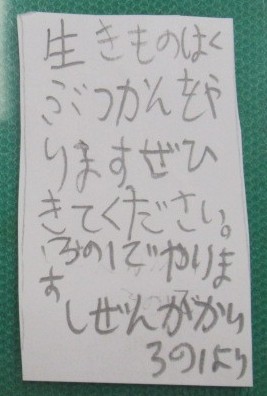 生きものはく
ぶつかんをや
りますぜひ
きてください。
3の1でやりま
す
しぜんががかり
3の1より